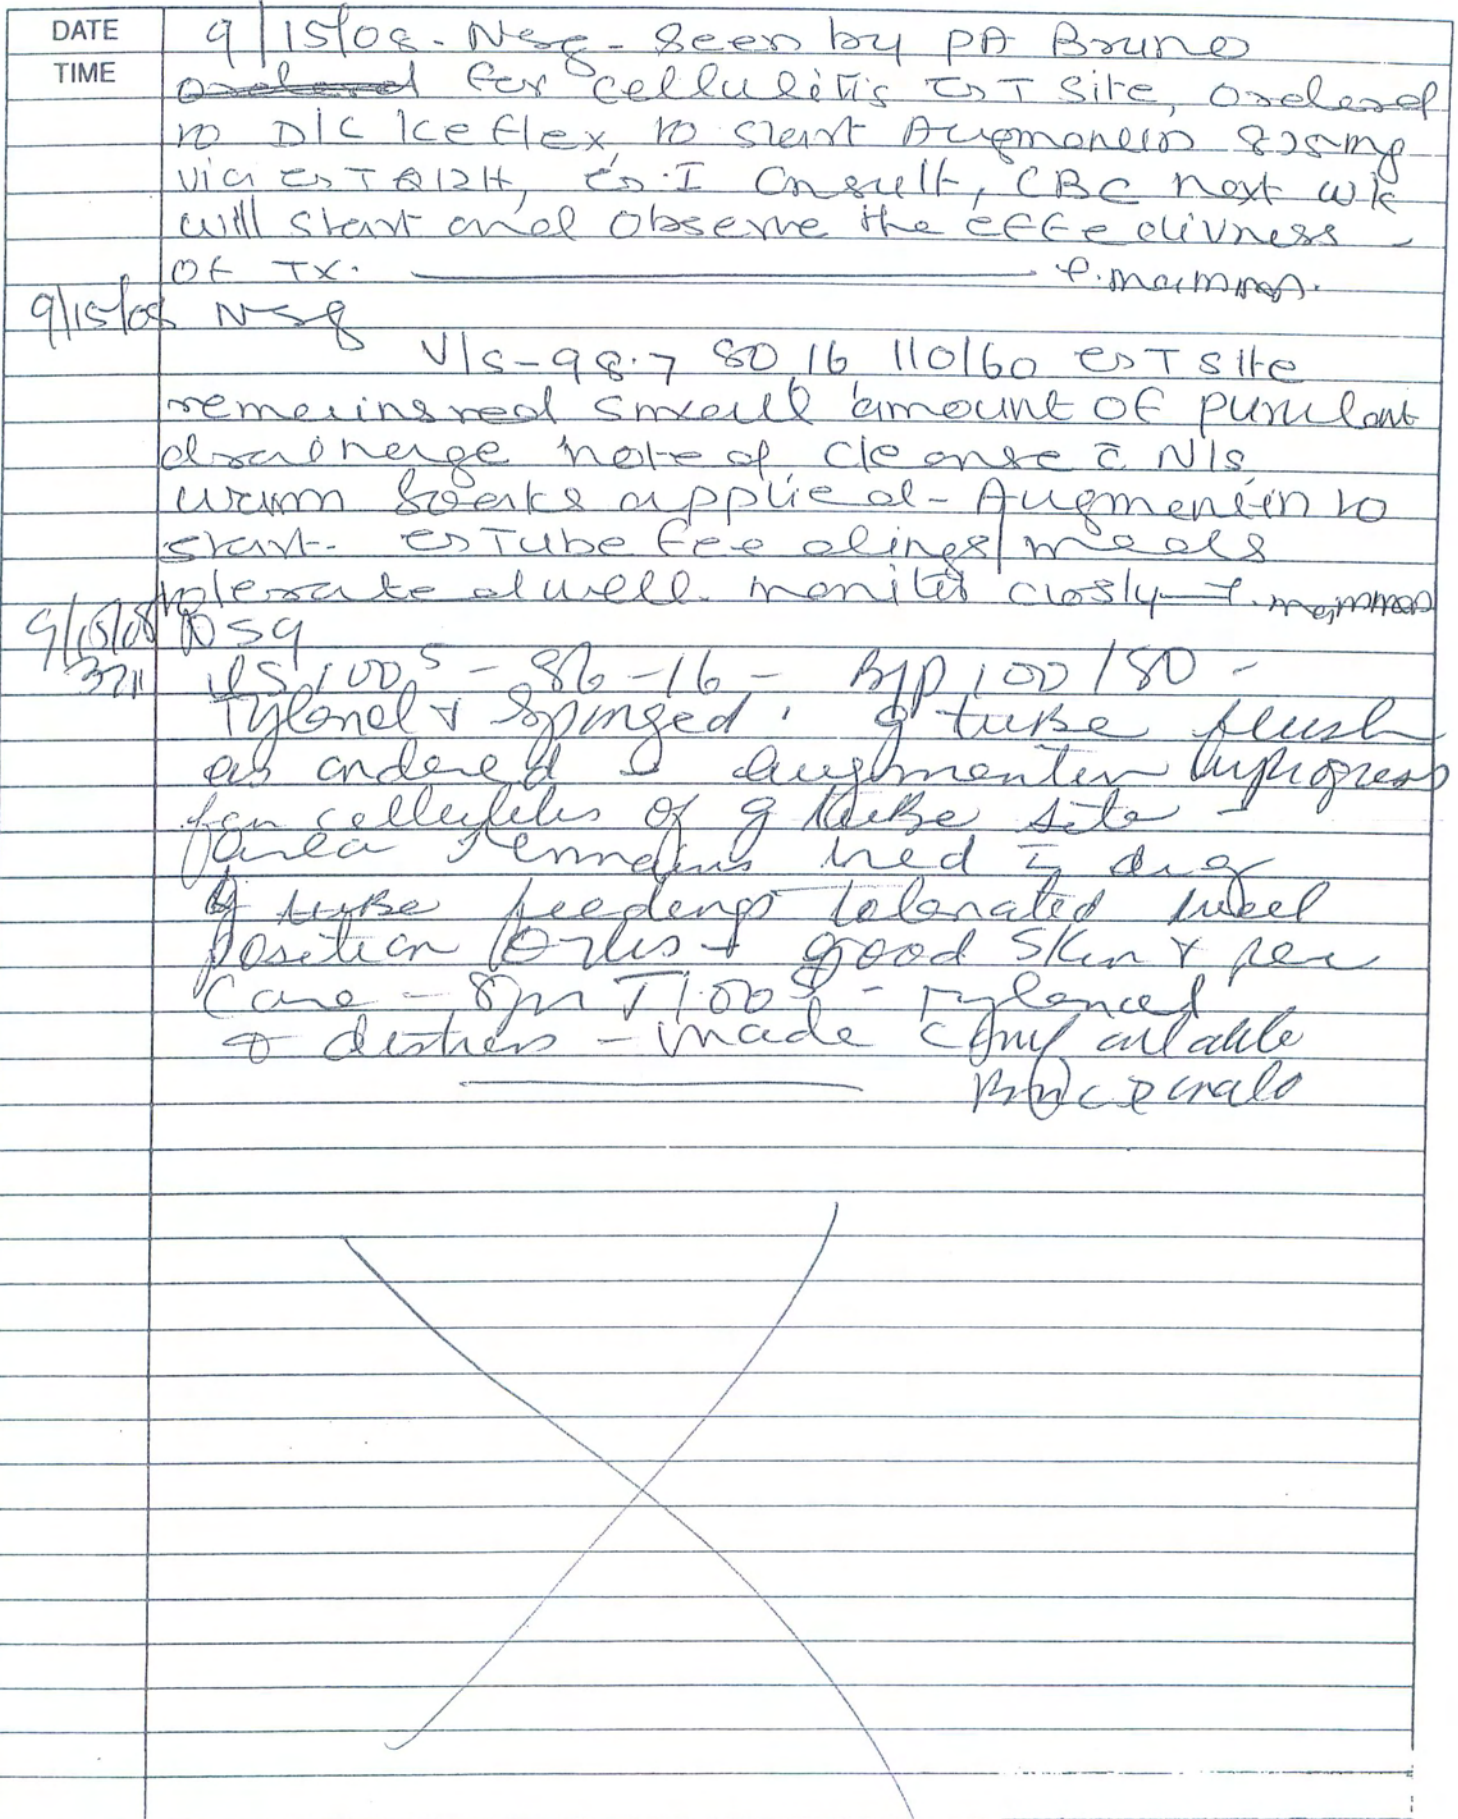 DATE 9/15/08. Nsg - Seen by PA Bruno
TIME ordered for cellulitis GT Site, ordered
to D/C Keflex, to start Augmentin 825mg
via GT Q12H, G.I Consult, CBC next wk
will start and observe the effectivness
of TX. P. mammen.
9/15/08 Nsg
V/S-98.7 80 16 110/60 GT site
remains red small amount of purulant
drainage noted, cleanse c̄ N/S,
warm soaks applied - Augmentin to
start. G Tube feedings/meals
tolerated well. monitor closly P. mammen
9/15/08 Nsg
3-11 VS 100⁵ - 86 -16 - B/P 100/80 -
Tylenol & Sponged. g tube flush
as ordered Augmenten in progress
for cellulites of g tube site -
area remains red c̄ drg
g tube feedings tolerated well
position good skin & peri
care - 8pm T100 - Tylenol
distress - made